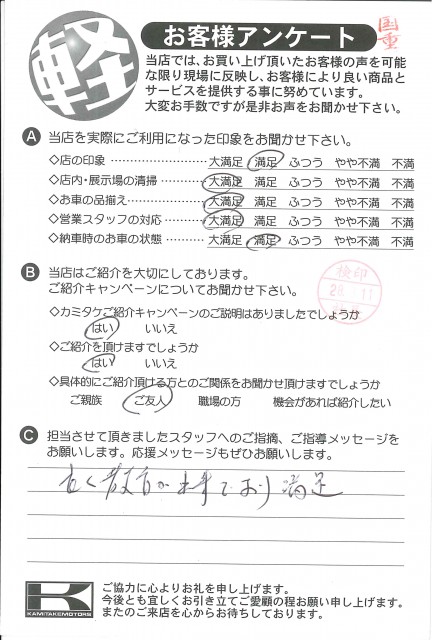 軽
お客様アンケート
国重
当店では、お買い上げ頂いたお客様の声を可能
な限り現場に反映し、お客様により良い商品と
サービスを提供する事に努めています。
大変お手数ですが是非お声をお聞かせ下さい。
A 当店を実際にご利用になった印象をお聞かせ下さい。
◇店の印象 ‥‥‥‥‥‥‥‥ 大満足 満足 ふつう やや不満 不満
◇店内・展示場の清掃‥‥‥‥ 大満足 満足 ふつう やや不満 不満
◇お車の品揃え‥‥‥‥‥‥ 大満足 満足 ふつう やや不満 不満
◇営業スタッフの対応‥‥‥‥ 大満足 満足 ふつう やや不満 不満
◇納車時のお車の状態‥‥‥‥ 大満足 満足 ふつう やや不満 不満
B 当店はご紹介を大切にしております。
ご紹介キャンペーンについてお聞かせ下さい。
検印
◇カミタケご紹介キャンペーンのご説明はありましたでしょうか
はい いいえ
◇ご紹介を頂けますでしょうか
はい いいえ
◇具体的にご紹介頂ける方とのご関係をお聞かせ頂けますでしょうか
ご親族 ご友人 職場の方 機会があれば紹介したい
C 担当させて頂きましたスタッフへのご指摘、ご指導メッセージを
お願いします。応援メッセージもぜひお願いします。
であり満足
K
KAMITAKEMOTORS
ご協力に心よりお礼を申し上げます。
今後とも宜しくお引き立てご愛顧の程お願い申し上げます。
またのご来店を心からお待ちしております。